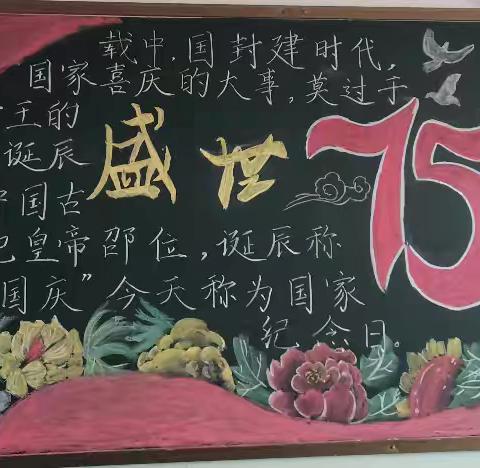 载中,国封建时代,
国家喜庆的大事,莫过于
王的
诞辰
盛世
75
国古
皇帝即位,诞辰称
国庆”今天称为国家
纪念日。